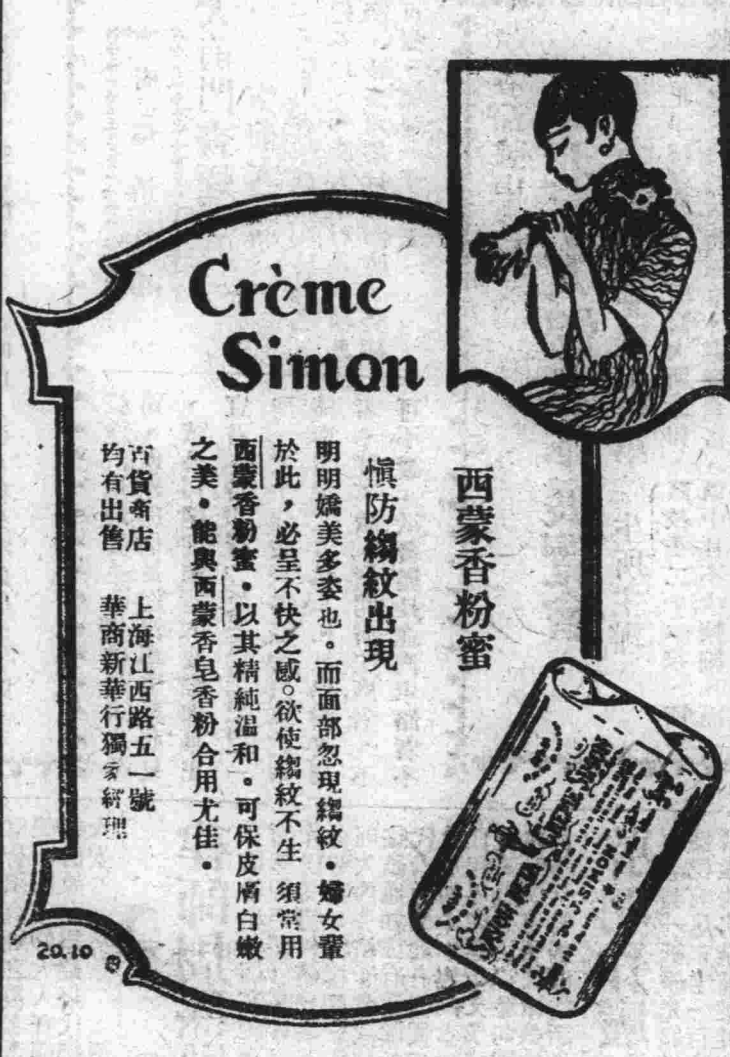 Crème
Simon
西蒙香粉蜜
慎防縐紋出現
明明嬌美多姿也。而面部忽現縐紋。婦女輩
於此，必呈不快之感。欲使縐紋不生 須常用
西蒙香粉蜜。以其精純溫和。可保皮膚白嫩
之美。能與西蒙香皂香粉合用尤佳。
百貨商店 上海江西路五一號
均有出售 華商新華行獨家經理
20.10
SIMON